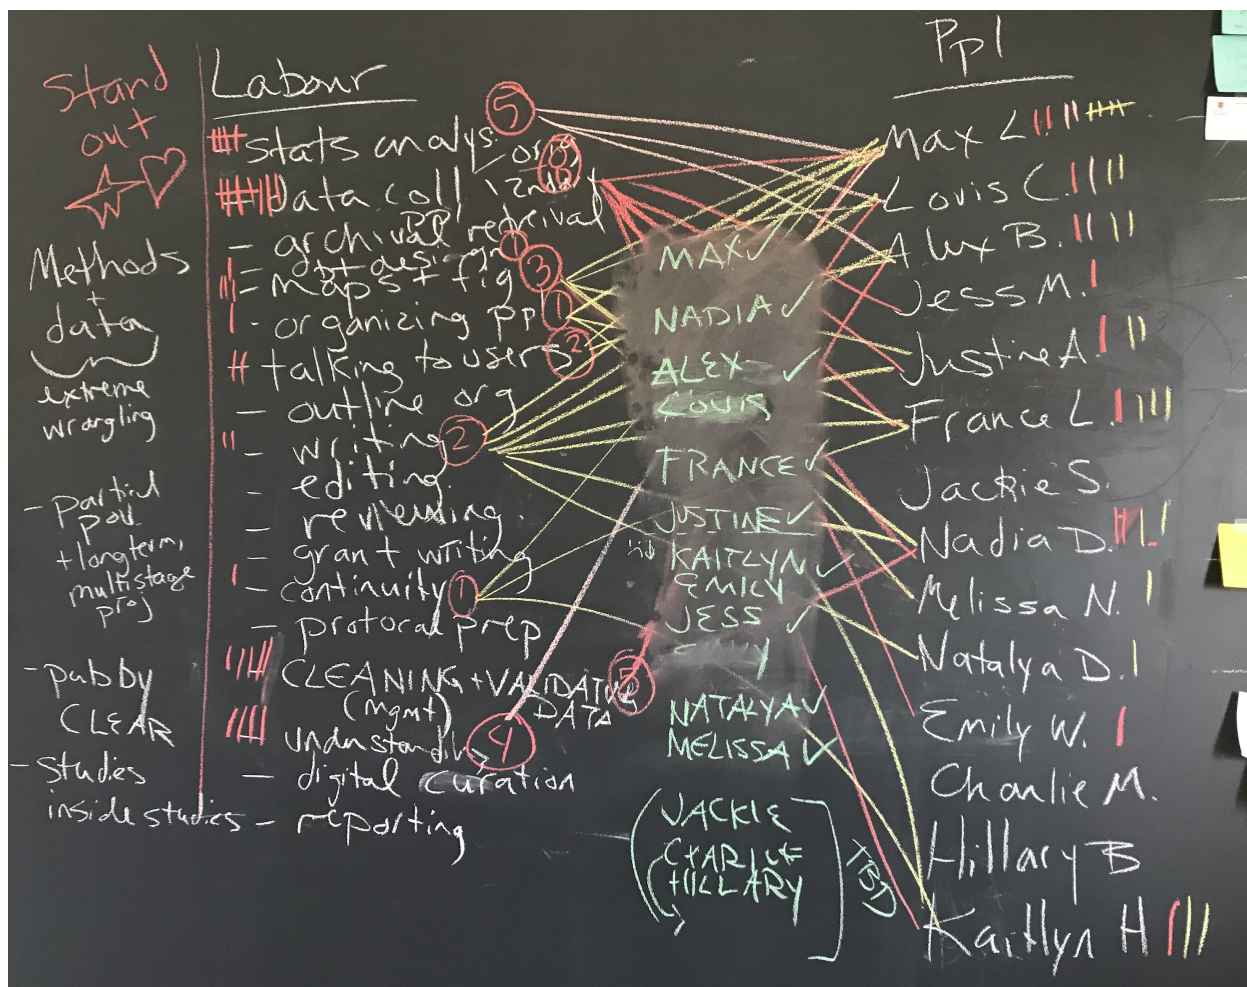 Stand
out
Methods
+
data
extreme
wrangling
- partial
+ longterm,
multistage
proj
- pub by
CLEAR
- studies
inside studies
Labour
stats analys.
Data coll
- archival retrieval
PPl
- maps + fig
- organizing ppl
talking to users
- outline org
- writing
- editing
- reviewing
- grant writing
- continuity
- protocal prep
CLEANING + VALIDATING
(mgmt) DATA
understanding
- digital curation
- reporting
5
8
1
3
1
2
2
1
4
5
MAX ✓
NADIA ✓
ALEX ✓
LOUIS
FRANCE ✓
JUSTINE ✓
KAITLYN ✓
EMILY
JESS ✓
NATALYA ✓
MELISSA ✓
JACKIE
CHARLIE
HILLARY
TBD
Ppl
Max L
Louis C.
Alex B.
Jess M.
Justine A.
France L.
Jackie S.
Nadia D.
Melissa N.
Natalya D.
Emily W.
Charlie M.
Hillary B
Kaitlyn H